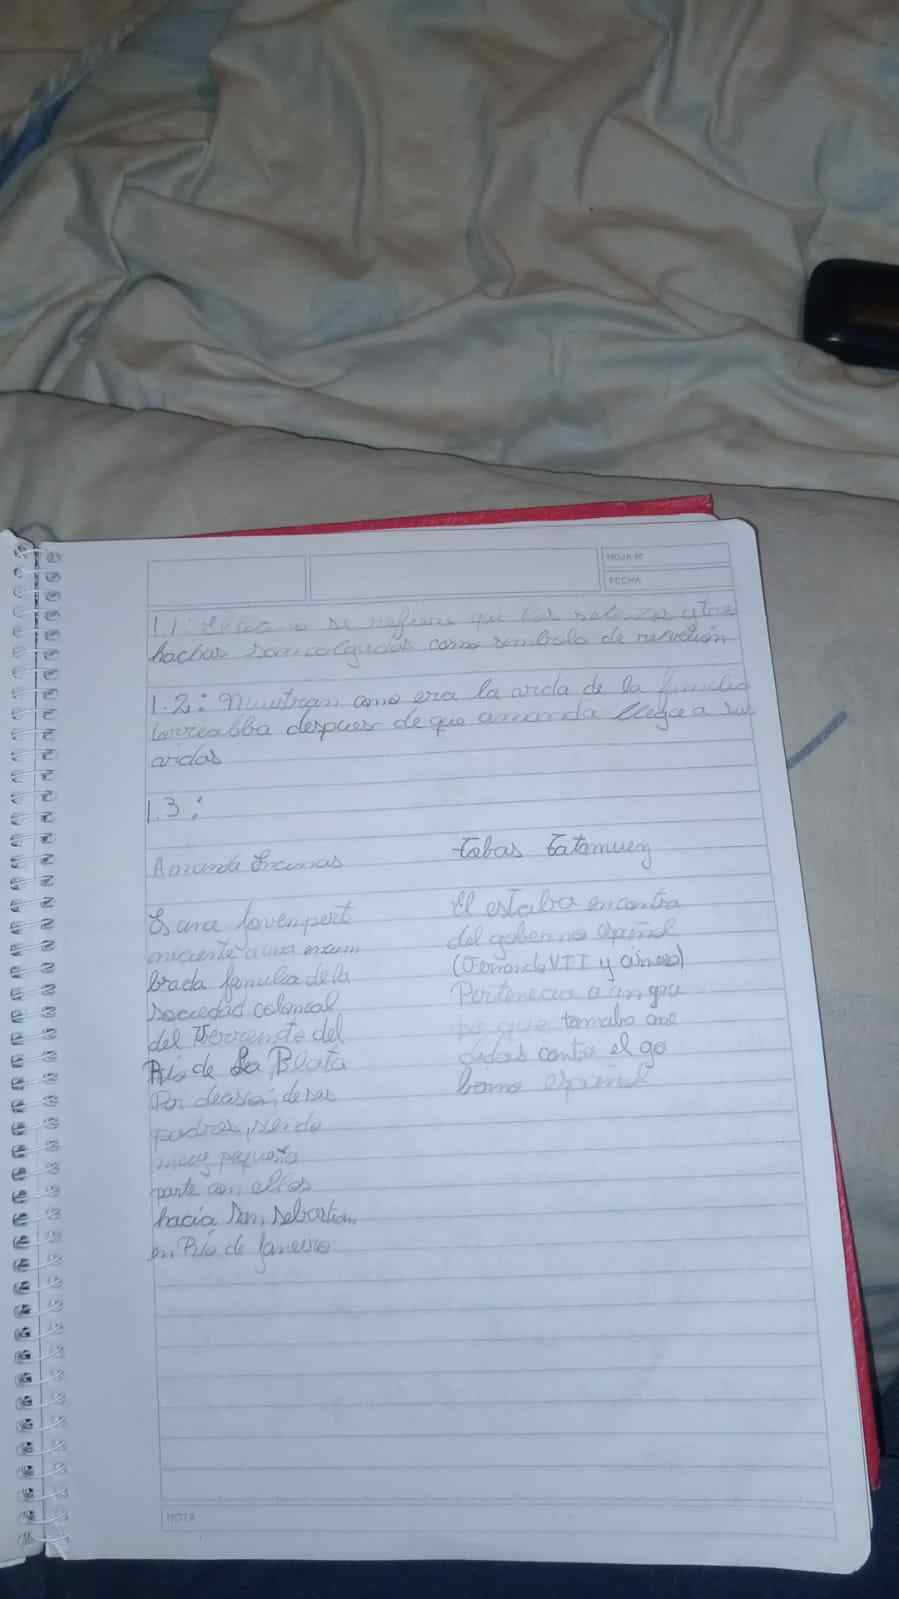 HOJA Nº
FECHA
1.1: se refiere que las
hachas son colgadas como simbolo de
1.2: Muestran como era la vida de la familia
despues de que amanda llega a sus
vidas
1.3:
Amanda Encinas
Es una Joven pert
eneciente a una encum
brada familia de la
sociedad colonial
del Virreinato del
Río de La Plata
Por decision de sus
padres, siendo
muy pequeña
parte con ellos
hacia San Sebastian
en Río de Janeiro
El estaba en contra
del gobierno español
(Fernando VII y
Pertenecia a un gru
po que tomaba me
didas contra el go
español
NOTA